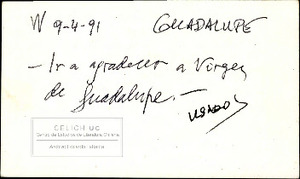 W 9-4-91 GUADALUPE
— Ir a agradecer a Virgen
de Guadalupe.—
USADO
CELICH UC
Centro de Estudios de Literatura Chilena